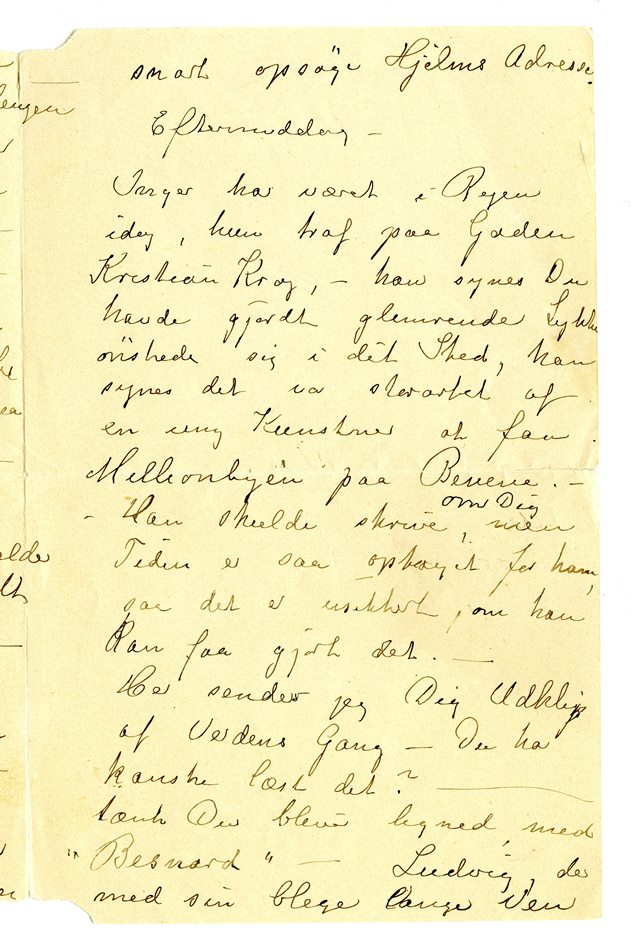 snart opsøge Hjelms Adresse.
Eftermiddag —
Inger har været i Byen
idag, hun traf paa Gaden
Kristian Krog, — han synes Du
havde gjordt glimrende Lykke
ønskede sig i dit Sted, han
synes det va storartet af
en ung Kunstner at faa
Millionbyen paa Benene. —
— Han skulde skrive om Dig, men
Tiden er saa optaget for ham,
saa det er usikkert, om han
kan faa gjort det. —
Her sender jeg Dig Udklip
af Verdens Gang — Du ha
kanske læst det? —
tænk Du bliver ligned med
"Besnard" — Ludvig, de
med sin blege lange Ven
lengen